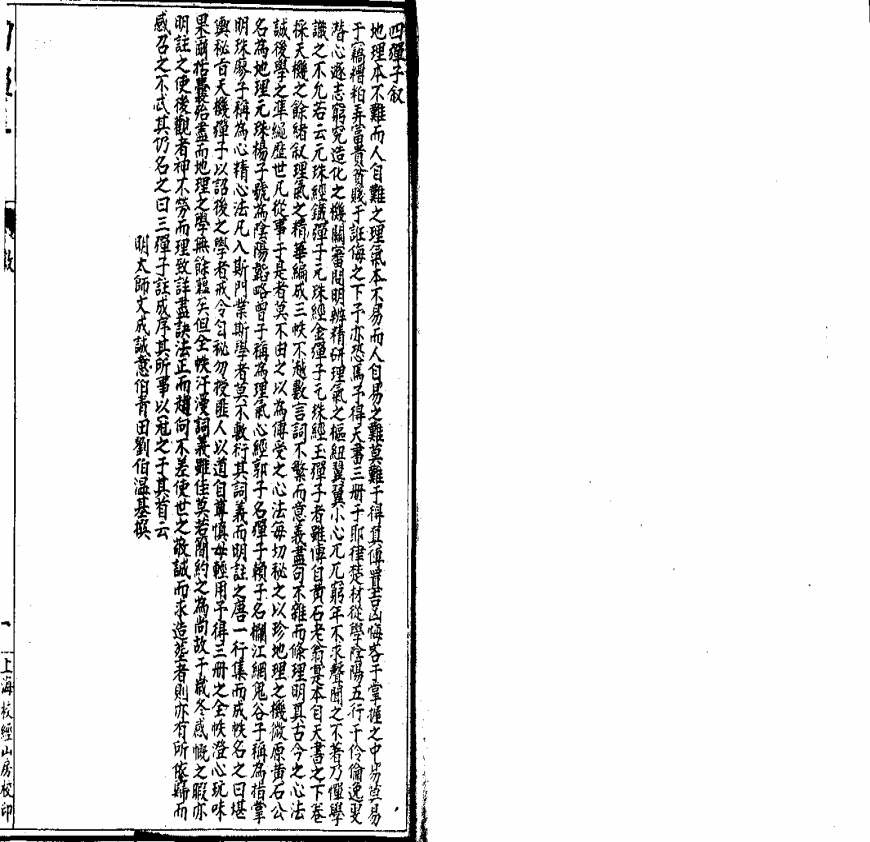 四彈子叙
地理本不難而人自難之理氣本不易而人自易之難莫難于得真傳置吉凶悔吝于掌握之中易莫易
于竊糟粕弄富貴貧賤于誣侮之下予亦恐焉予得天書三册于耶律楚材從學陰陽五行于伶倫逸叟
潛心遜志窮究造化之機關審問明辨精研理氣之樞紐翼翼小心兀兀窮年不求聲聞之不著乃僅學
識之不允若云元珠經鐵彈子元珠經金彈子元珠經玉彈子者雖傳自黄石老翁寔本自天書之下卷
採天機之餘緒叙理氣之精華編成三帙不越數言詞不繁而意義盡句不雜而條理明真古今之心法
誠後學之準繩歷世凡從事于是者莫不由之以為傳受之心法每切秘之以珍地理之機微原黄石公
名為地理元珠楊子號為陰陽韜略曾子稱為理氣心經郭子名彈子賴子名欄江網鬼谷子稱為指掌
明珠廖子稱為心精心法凡入斯門業斯學者莫不敷衍其詞義而明註之唐一行集而成帙名之曰堪
輿秘旨天機彈子以詔後之學者戒令勿秘勿授匪人以道自尊慎毋輕用予得三册之全帙澄心玩味
果囊括殆盡而地理之學無餘蘊矣但全帙汗漫詞義雖佳莫若簡約之為尚故于歲冬感慨之暇亦
明註之使後觀者神不勞而理致詳盡訣法正而趨向不差使世之敬誠而求造塋者則亦有所依歸而
感召之不忒其仍名之曰三彈子註成序其所事以冠之于其首云
明太師文成誠意伯青田劉伯温基撰
叙
一
上海校經山房校印